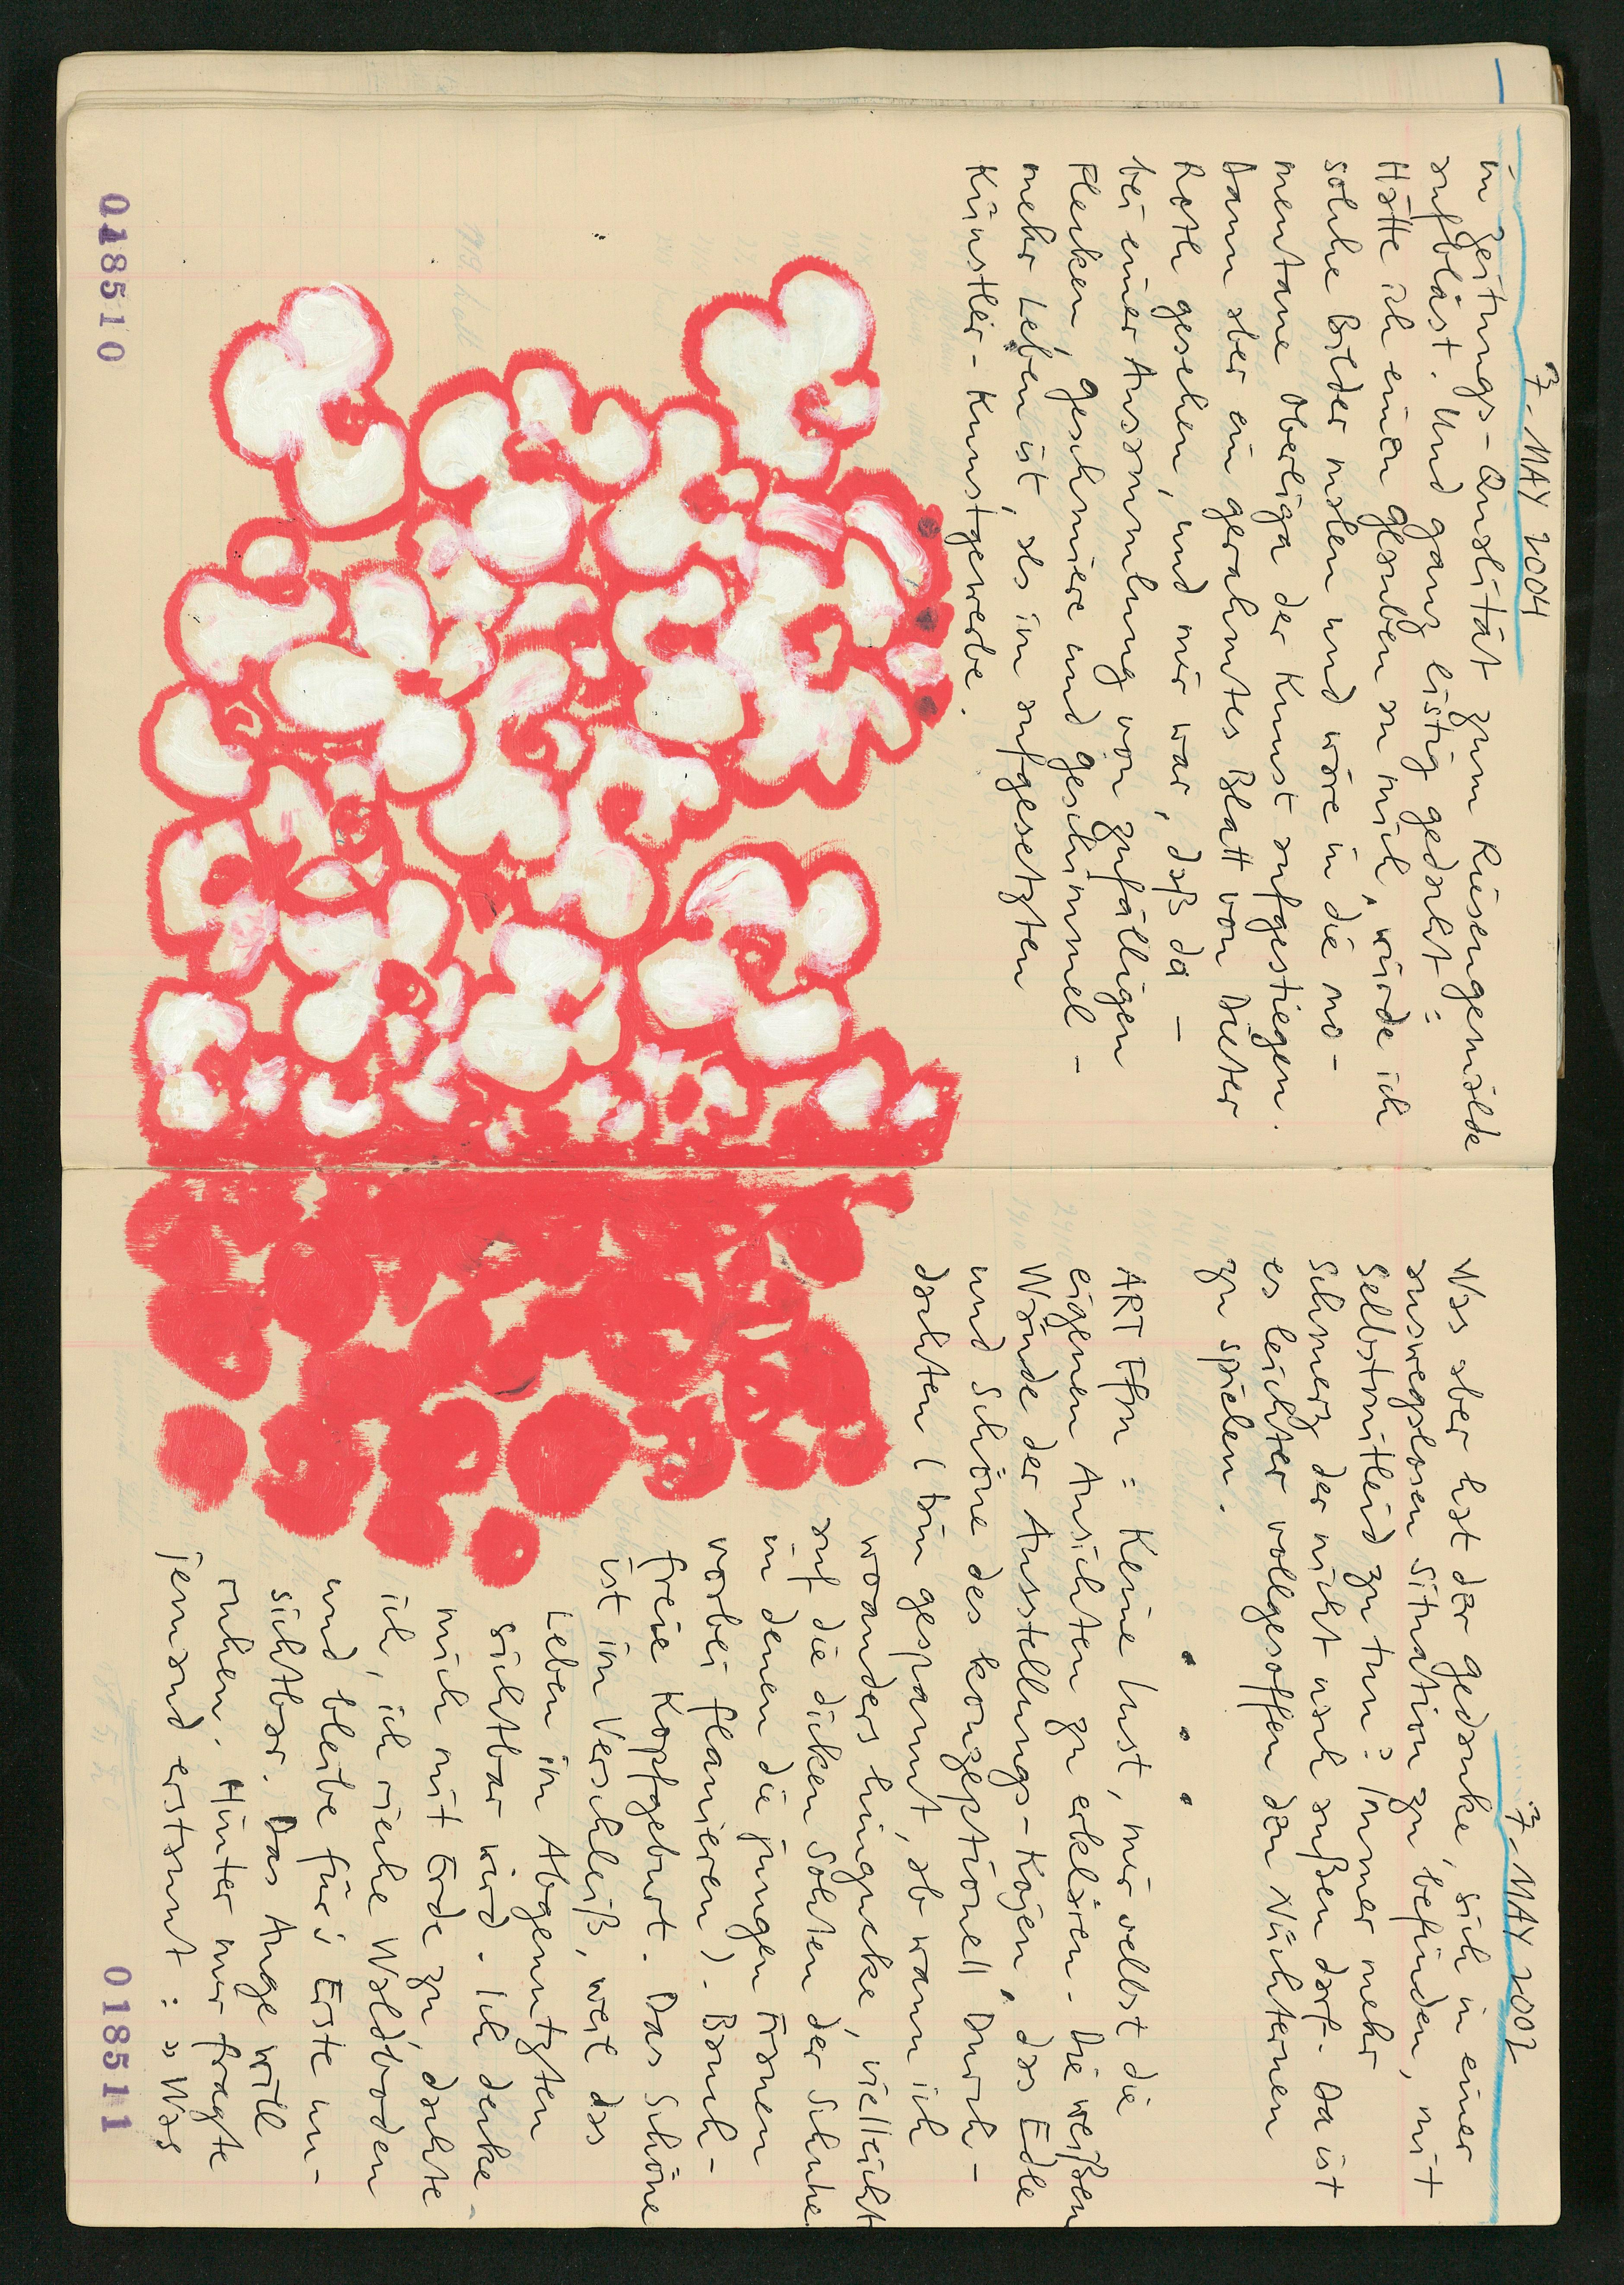 7. MAY 2004
in Zeitungs-Qualität zum Riesengemälde
aufbläst. Und ganz listig gedacht:
Hätte ich einen Glauben an mich, würde ich
solche Bilder malen und wäre in die mo-
mentane Oberliga der Kunst aufgestiegen.
Dann aber ein gerahmtes Blatt von Dieter
Roth gesehen, und mir war, daß da –
bei einer Ansammlung von zufälligen
Flecken, Geschmiere und Geschimmel –
mehr Leben ist, als im aufgesetzten
Künstler-Kunstgewerbe.
018510
7. MAY 2007
Was aber hat der Gedanke, sich in einer
ausweglosen Situation zu befinden, mit
Selbstmitleid zu tun? Immer mehr
Schmerz der nicht nach außen darf. Da ist
es leichter vollgesoffen den Nüchternen
zu spielen.
• • •
ART Ffm: Keine Lust, mir selbst die
eigenen Ansichten zu erklären. Die weißen
Wände der Ausstellungs-Kojen, das Edle
und Schöne des konzeptionell Durch-
dachten (bin gespannt, ab wann ich
woanders hingucke, vielleicht
auf die dicken Sohlen der Schuhe
in denen die jungen Frauen
vorbei flanieren). Bauch-
freie Kopfgeburt. Das Schöne
ist im Verschleiß, weil das
Leben im Abgenutzten
sichtbar wird. Ich decke
mich mit Erde zu, dachte
ich, ich rieche Waldboden
und bleibe für's Erste un-
sichtbar. Das Auge will
ruhen. Hinter mir fragte
jemand erstaunt: »Was
018511